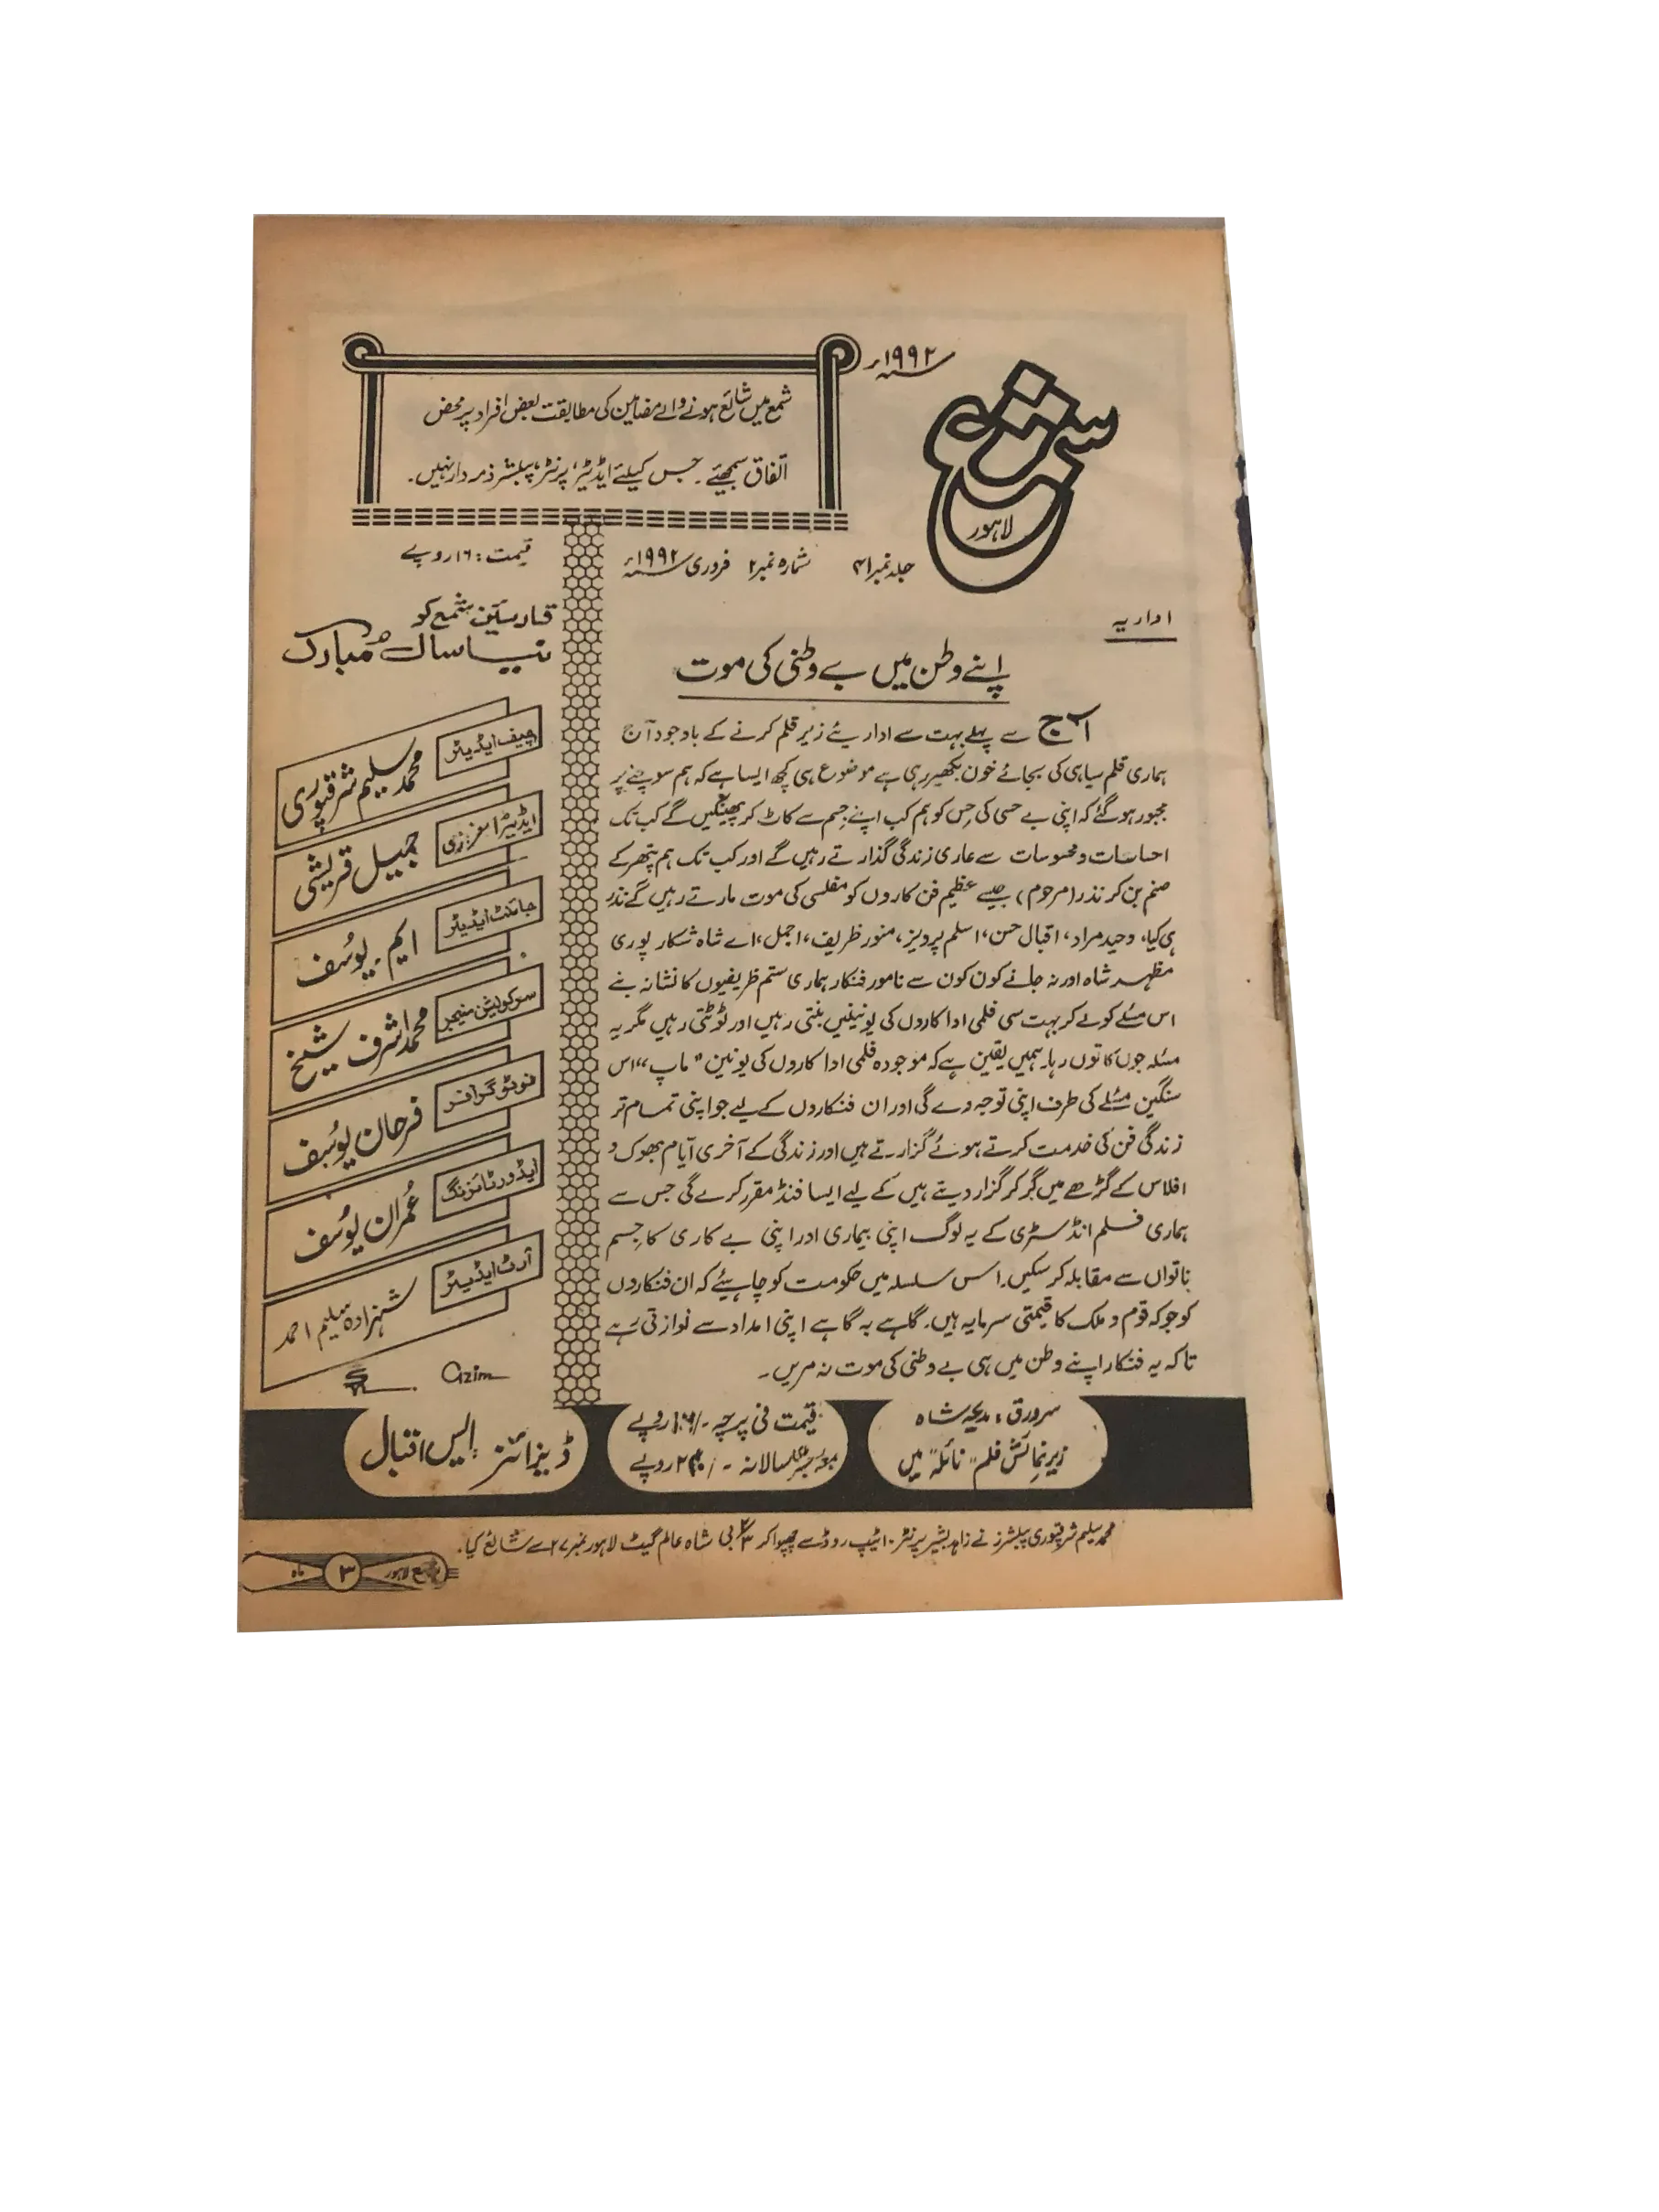 ۱۹۹۲ء
شمع
لاہور
شمع میں شائع ہونے والے مضامین کی مطابقت بعض افراد پر محض
اتفاق سمجھئیے۔ جس کیلئے ایڈیٹر، پرنٹر، پبلشر ذمہ دار نہیں۔
جلد نمبر ۴۱ شمارہ نمبر ۲ فروری ۱۹۹۲ء
قیمت: ۱۶ روپے
اداریہ
اپنے وطن میں بے وطنی کی موت
آج سے پہلے بہت سے اداریئے زیر قلم کرنے کے باوجود آج
ہماری قلم سیاہی کی بجائے خون بکھیر رہی ہے موضوع ہی کچھ ایسا ہے کہ ہم سوچنے پر
مجبور ہو گئے کہ اپنی بے حسی کی حِس کو ہم کب اپنے جسم سے کاٹ کر پھینکیں گے کب تک
احساسات و محسوسات سے عاری زندگی گذارتے رہیں گے اور کب تک ہم پتھر کے
صنم بن کر نذر (مرحوم) جیسے عظیم فن کاروں کو مفلسی کی موت مارتے رہیں گے نذر
ہی کیا، وحید مراد، اقبال حسن، اسلم پرویز، منور ظریف، اجمل، اے شاہ شکار پوری
مظہر شاہ اور نہ جانے کون کون سے نامور فنکار ہماری ستم ظریفیوں کا نشانہ بنے
اس مسئلے کو لے کر بہت سی فلمی اداکاروں کی یونینیں بنتی رہیں اور ٹوٹتی رہیں مگر یہ
مسئلہ جوں کا توں رہا۔ ہمیں یقین ہے کہ موجودہ فلمی اداکاروں کی یونین "ماپ" اس
سنگین مسئلے کی طرف اپنی توجہ دے گی اور ان فنکاروں کے لیے جو اپنی تمام تر
زندگی فن کی خدمت کرتے ہوئے گزارتے ہیں اور زندگی کے آخری آیام بھوک و
افلاس کے گڑھے میں گر کر گزار دیتے ہیں کے لیے ایسا فنڈ مقرر کرے گی جس سے
ہماری فلم انڈسٹری کے یہ لوگ اپنی بیماری اور اپنی بے کاری کا جسم
ناتواں سے مقابلہ کر سکیں۔ اس سلسلہ میں حکومت کو چاہیئے کہ ان فنکاروں
کو جو کہ قوم و ملک کا قیمتی سرمایہ ہیں۔ گاہے بہ گاہے اپنی امداد سے نوازتی رہے
تاکہ یہ فنکار اپنے وطن میں ہی بے وطنی کی موت نہ مریں۔
قارئین شمع کو
نیا سال مُبارک
چیف ایڈیٹر
محمد سلیم شرقپوری
ایڈیٹر اعزازی
جمیل قریشی
جائنٹ ایڈیٹر
ایم۔ یوسُف
سرکولیشن منیجر
محمد اشرف شیخ
فوٹو گرافر
فرحان یوسُف
ایڈورٹائزنگ
عُمران یوسُف
آرٹ ایڈیٹر
شہزادہ سلیم احمد
Azim
سرورق: مدیحہ شاہ
زیر نمائش فلم "نائلہ" میں
قیمت فی پرچہ -/۱۶ روپے
سالانہ -/۲۴۰ روپے
ڈیزائنر: ایس اقبال
محمد سلیم شرقپوری پبلشرز نے زاہد بشیر پرنٹر ۱۰ ٹیپ روڈ سے چھپوا کر ۳/۴ بی شاہ عالم گیٹ لاہور نمبر ۲۷ سے شائع کیا۔
شمع لاہور ۳ ماہ